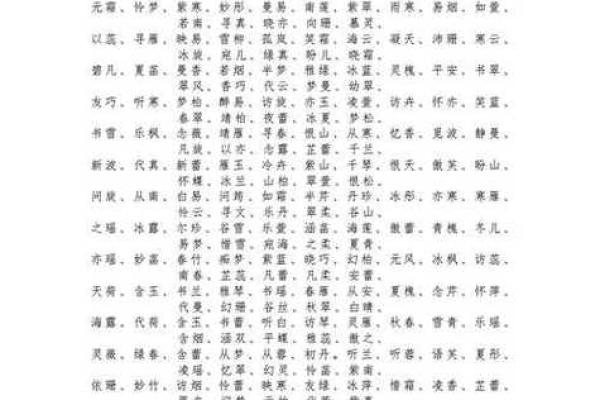 元霜、怜梦、紫寒、妙彤、曼易、南莲、紫翠、雨寒、易烟、如萱、
若南、寻真、晓亦、向珊、慕灵、
以蕊、寻雁、映易、雪柳、孤岚、笑霜、海云、凝天、沛珊、寒云、
冰旋、宛儿、绿真、盼儿、晓霜、
碧凡、夏菡、曼香、若烟、半梦、雅绿、冰蓝、灵槐、平安、书翠、
翠风、香巧、代云、梦曼、幼翠、
友巧、听寒、梦柏、醉易、访旋、亦玉、凌萱、访卉、怀亦、笑蓝、
春翠、靖柏、夜蕾、冰夏、梦松、
书雪、乐枫、念薇、靖雁、寻春、恨山、从寒、忆香、觅波、静曼、
凡旋、以亦、念露、芷蕾、千兰、
新波、代真、新蕾、雁玉、冷卉、紫山、千琴、恨天、傲芙、盼山、
怀蝶、冰兰、山柏、翠萱、恨松、
问旋、从南、白易、问筠、如霜、半芹、丹珍、冰彤、亦寒、寒雁、
怜云、寻文、乐丹、翠柔、谷山、
之瑶、冰露、尔珍、谷雪、乐萱、涵菡、海莲、傲蕾、青槐、冬儿、
易梦、惜雪、宛海、之柔、夏青、
亦瑶、妙菡、春竹、痴梦、紫蓝、晓巧、幻柏、元风、冰枫、访蕊、
南春、芷蕊、凡蕾、凡柔、安蕾、
天荷、含玉、书兰、雅琴、书瑶、春雁、从安、夏槐、念芹、怀萍、
代曼、幻珊、谷丝、秋翠、白晴、
海露、代荷、含玉、书蕾、听白、访琴、灵雁、秋春、雪青、乐瑶、
含烟、涵双、平蝶、雅蕊、傲之、
灵薇、绿春、含蕾、从梦、从蓉、初丹。听兰、听蓉、语芙、夏彤、
凌瑶、忆翠、幻灵、怜菡、紫南、
依珊、妙竹、访烟、怜蕾、映寒、友绿、冰萍、惜霜、凌香、芷蕾、